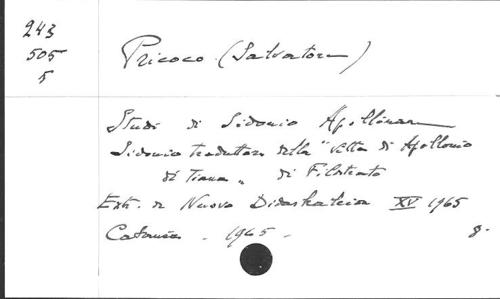 243
505
5
Pricoco (Salvatore)
Studi di Sidonio Apollinare
Sidonio traduttore della "Vita di Apollonio
di Tiana" di Filostrato
Extr. de Nuovo Didaskaleion XV 1965
Catania - 1965 - 8-